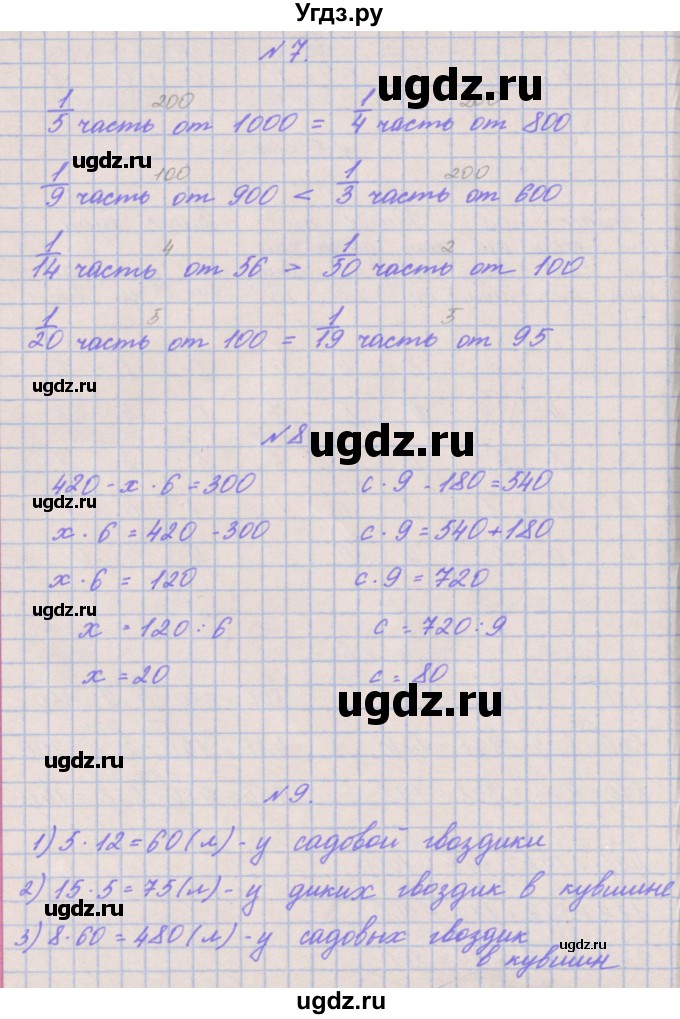 Угдз.ру
№7.
ugdz.ru
200 200
1/5 часть от 1000 = 1/4 часть от 800
ugdz.ru
100 200
1/9 часть от 900 < 1/3 часть от 600
4 2
1/14 часть от 56 > 1/50 часть от 100
5 5
1/20 часть от 100 = 1/19 часть от 95
ugdz.ru
№8
ugdz.ru
420 - х · 6 = 300 с · 9 - 180 = 540
ugdz.ru
х · 6 = 420 - 300 с · 9 = 540 + 180
х · 6 = 120 с · 9 = 720
ugdz.ru
х = 120 : 6 с = 720 : 9
х = 20 с = 80
ugdz.ru
ugdz.ru
№9.
1) 5 · 12 = 60 (л) - у садовой гвоздики
2) 15 · 5 = 75 (л) - у диких гвоздик в кувшине
ugdz.ru
3) 8 · 60 = 480 (л) - у садовых гвоздик
в кувшин
ugdz.ru
ugdz.ru